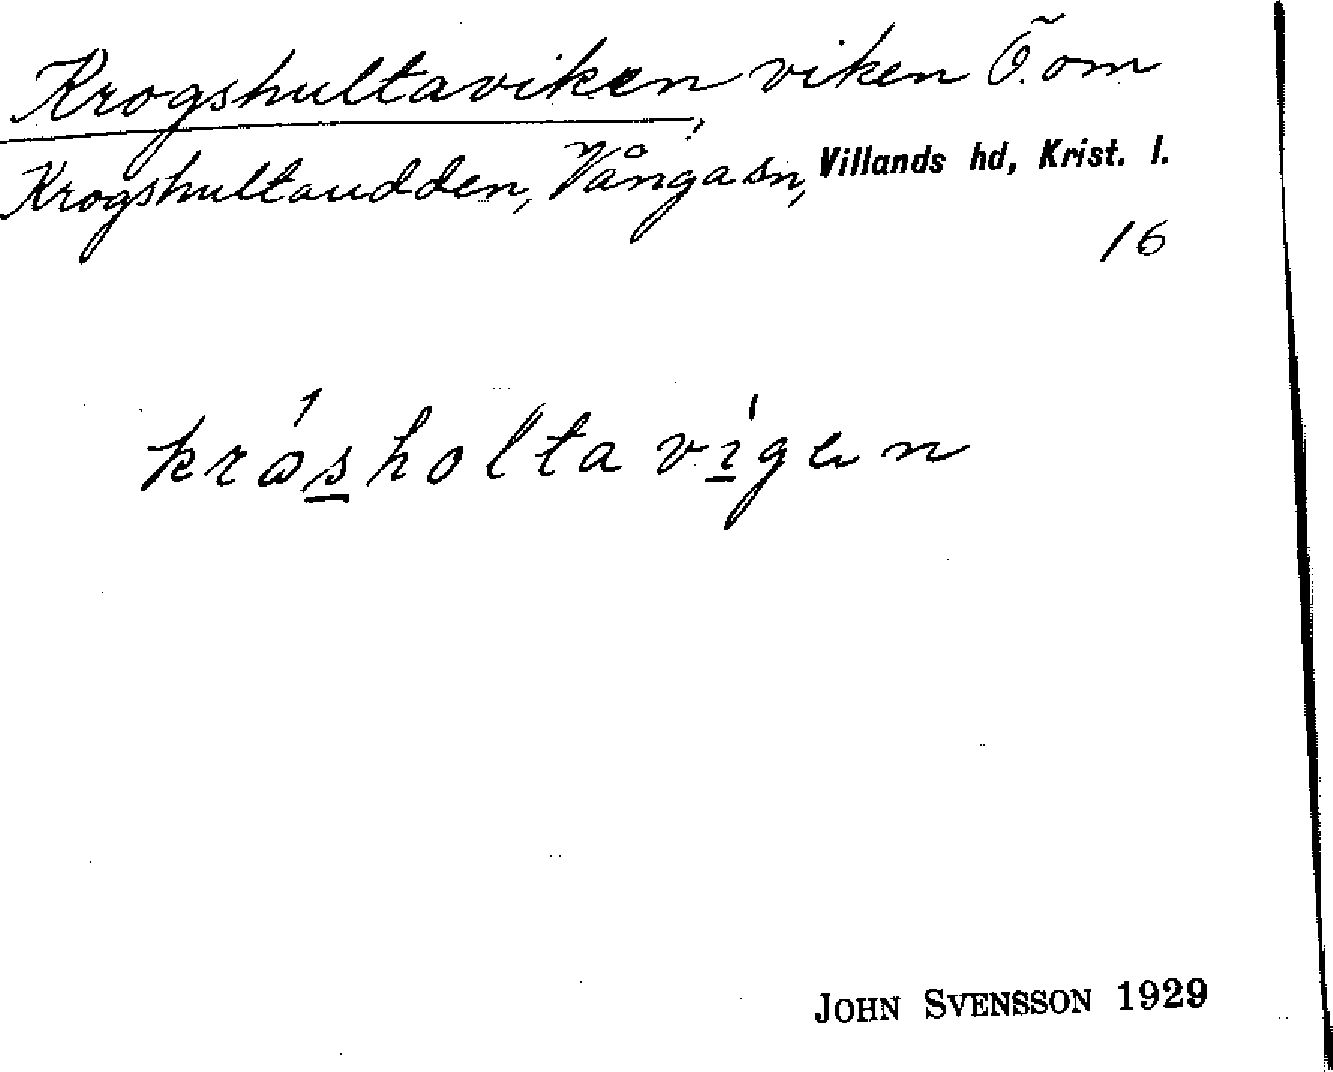 Krogshultaviken, viken Ö. om
Krogshultaudden, Vånga sn, Villands hd, Krist. l.
16
JOHN SVENSSON 1929